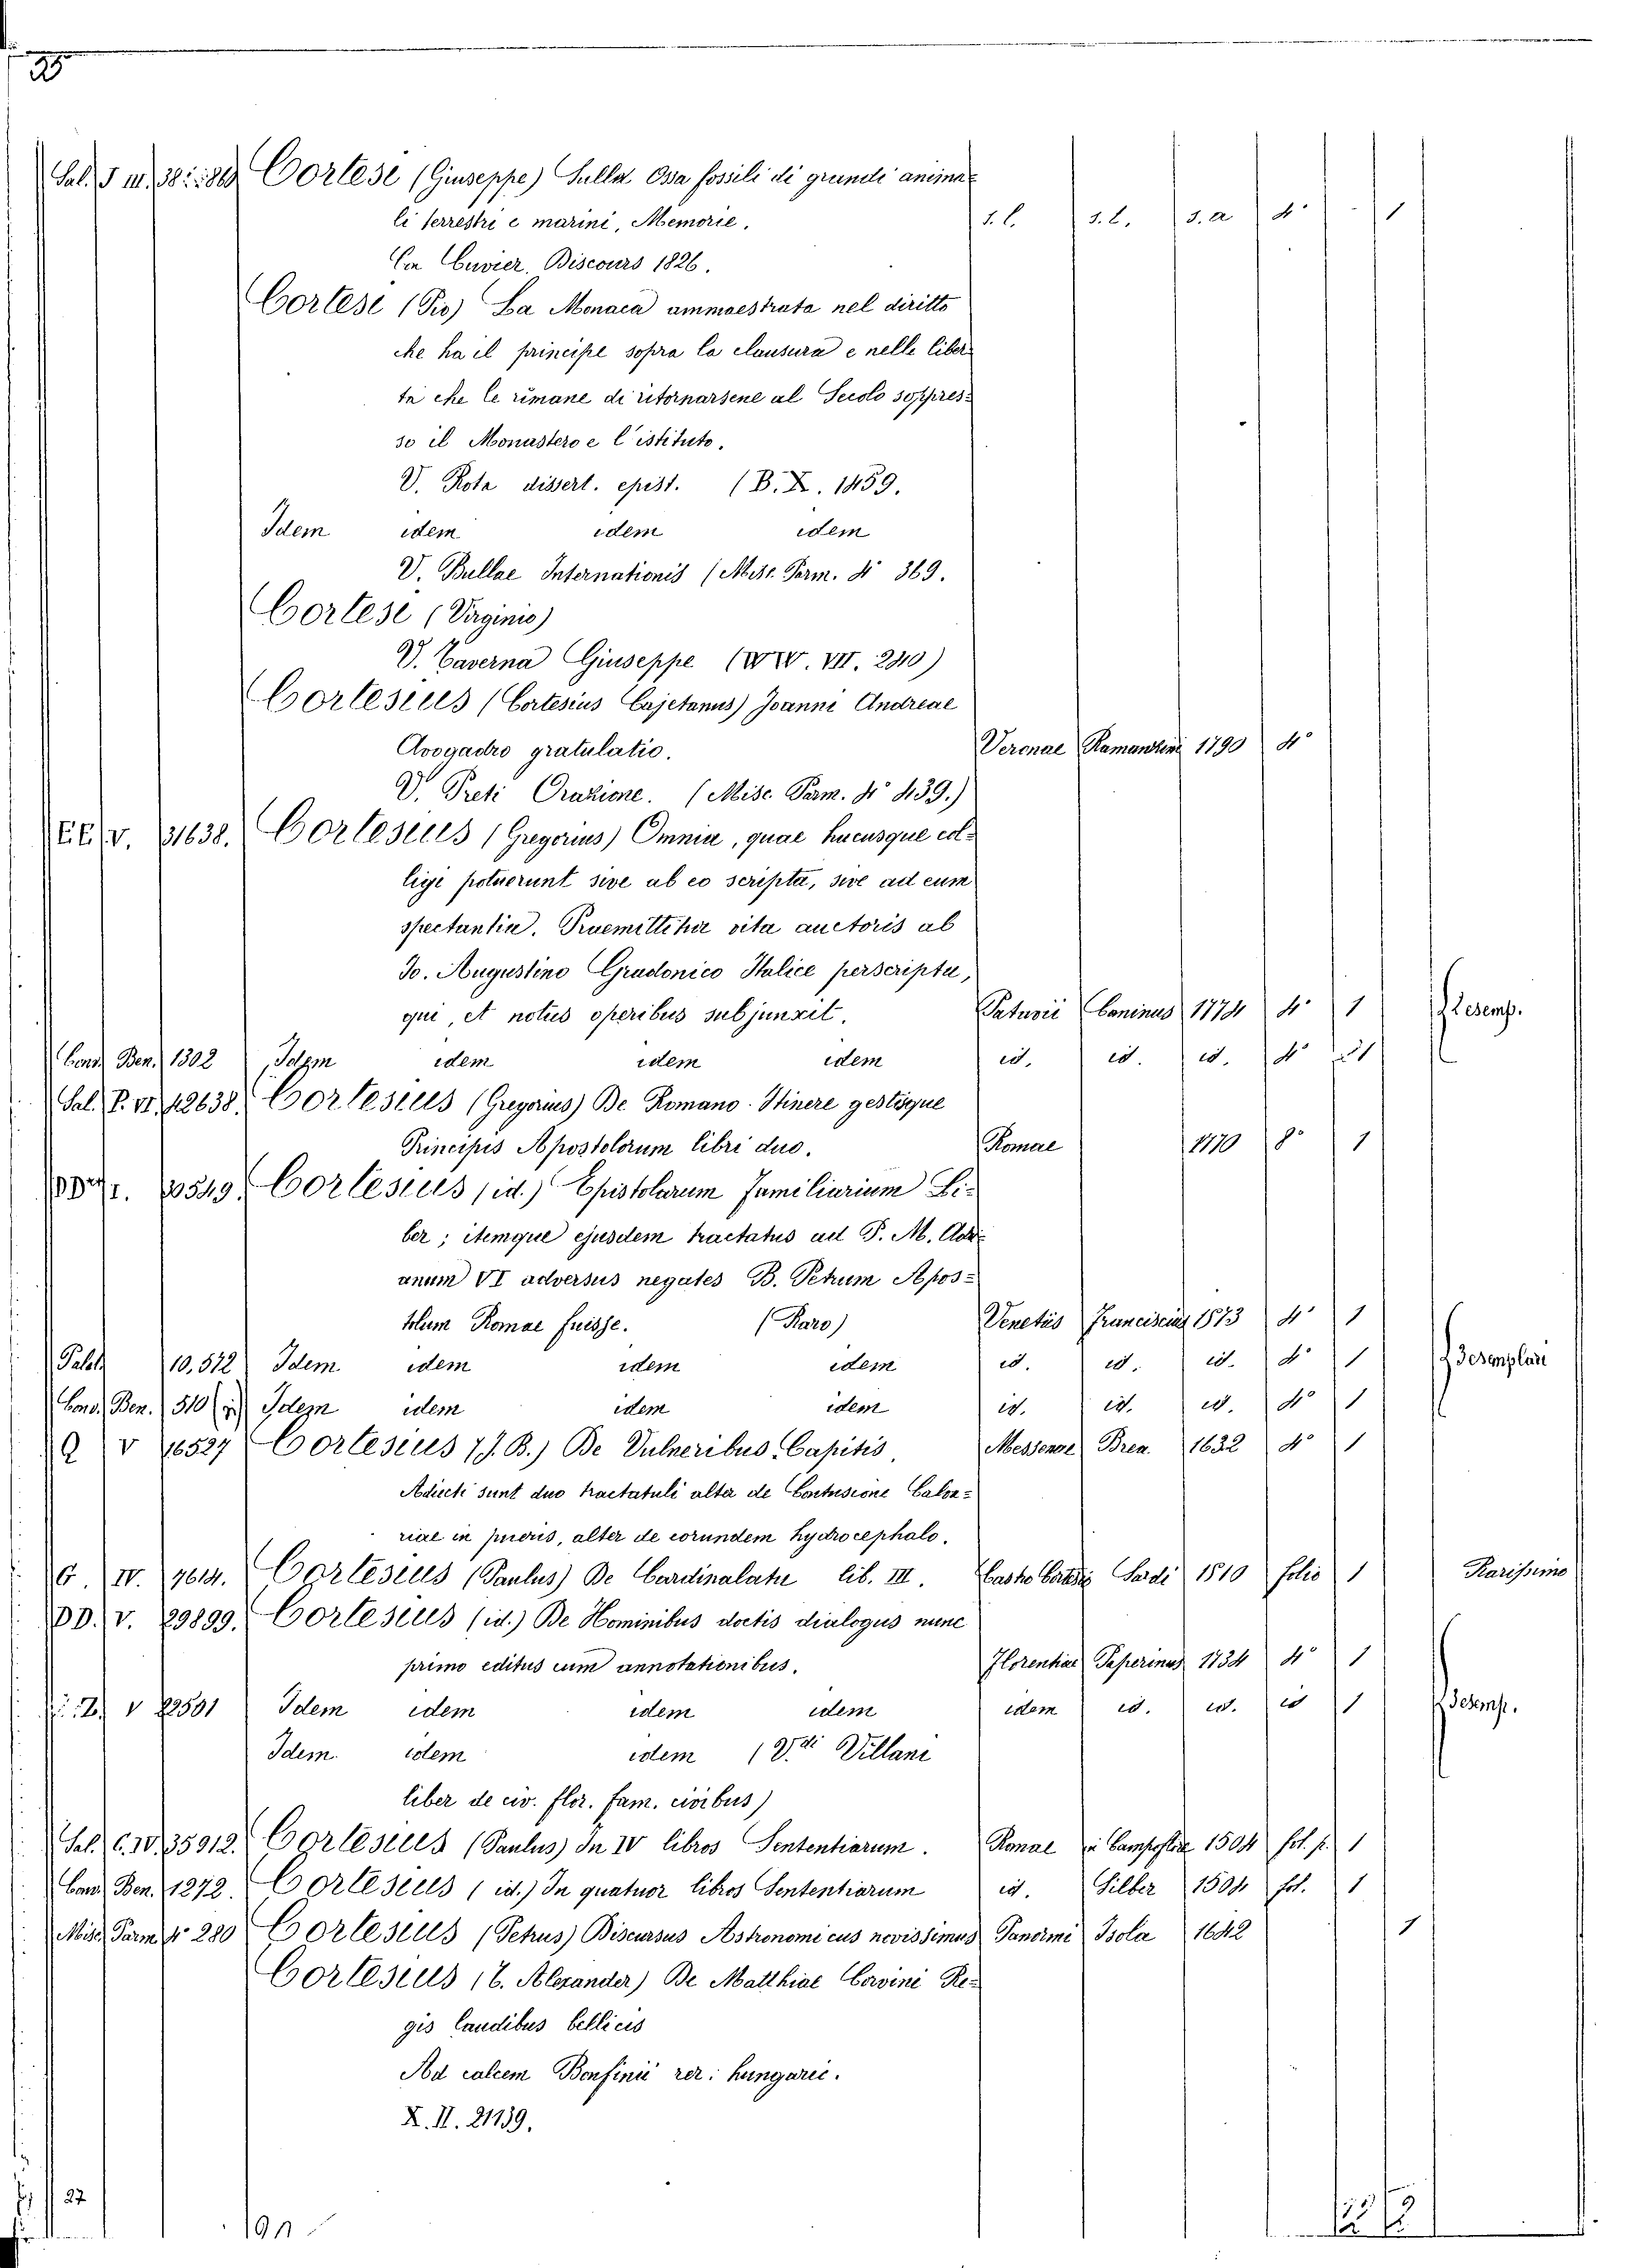 Cortese (Giuseppe) Sulla Ossa fossili di grandi anima=
li terrestri e marini, Memorie. s. l. s. l. s. a 4° 1
Cuvier, Discours 1826.
Cortese (Pio) La Monaca ammaestrata nel diritto
che ha il principe sopra la clausura e nelle liber
tà che le rimane di ritornarsene al Secolo soppres=
so il Monastero e l'istituto.
V. Rota dissert. epist. (B. X. 1459.
Idem idem idem idem
V. Bullae Internationis (Misc. Parm. 4° 369.
Cortese (Virginio)
V. Taverna Giuseppe VII. 240)
Cortesius (Cortesius Cajetanus) Joanni Andreae
Avogadro gratulatio. Veronae Ramanzini 1790 4°
V. Preti Orazione. (Misc. Parm. 4° 439.)
EE. V. 31638. Cortesius (Gregorius) Omnia, quae hucusque col=
ligi potuerunt sive ab eo scripta, sive ad eum
spectantia. Praemittitur vita auctoris ab
Jo. Augustino Gradonico Italice perscripta,
qui, et notus operibus subjunxit. Patavii Cominus 1774 4° 1 2 esemp.
Cond. Ben. 1302 Idem idem idem idem id. id. id. 4° 1
Sal. P. VI. 42638. Cortesius (Gregorius) De Romano Itinere gestisque
Principis Apostolorum libri duo. Romae 1770 8° 1
Cortesius (id.) Epistolarum familiarium Li=
ber; itemque ejusdem tractatus ad P. M. Adri
anum VI adversus negates B. Petrum Apos=
tolum Romae fuisse. (Raro) Venetiis Franciscius 1573 4° 1
Palat. 10,572 Idem idem idem idem id. id. id. 4° 1 3 esemplari
Cond. Ben. 510 Idem idem idem idem id. id. id. 4° 1
Q V 16527 Cortesius (J. B.) De Vulneribus Capitis, Messanae Brea 1632 4° 1
Adiecti sunt duo tractatuli alter de Contusione Calva=
riae in pueris, alter de eorundem hydrocephalo.
G. IV. 7614. Cortesius (Paulus) De Cardinalatu lib. III. Castro Cortesio Nardi 1510 folio 1 Rarissimo
DD. V. 29899. Cortesius (id.) De Hominibus doctis dialogus nunc
primo editus cum annotationibus. Florentiae Paperinus 1734 4° 1
V 22501 Idem idem idem idem idem id. id. id 1 2 esemp.
Idem idem idem (Vdi Villani
liber de civ. flor. fam. civibus)
Sal. C. IV. 35912. Cortesius (Paulus) In IV libros Sententiarum. Romae in Campoflore 1504 fol. p. 1
Cond. Ben. 1272. Cortesius (id.) In quatuor libros Sententiarum id. Silber 1504 fol. 1
Misc. Parm 4° 280 Cortesius (Petrus) Discursus Astronomicus novissimus Panormi Isola 1642 1
Cortesius (Alexander) De Matthiae Corvini Re=
gis laudibus bellicis
Ad calcem Bonfinii rer: hungaric.
X. II. 21139.
27